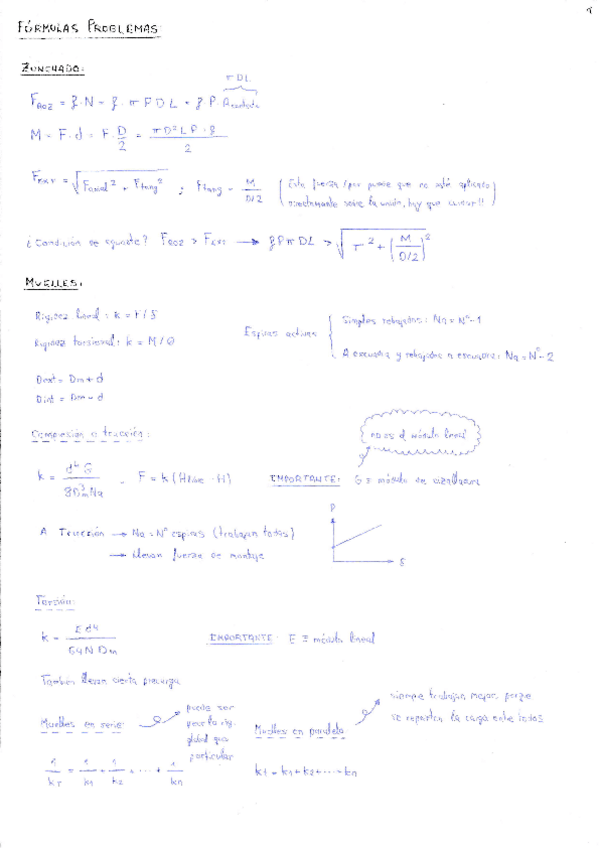 1
FÓRMULAS PROBLEMAS
ZUNCHADO:
π D L
F_ROZ = ȝ · N = ȝ · π P D L = ȝ · P · A_contacto
M = F · d = F · D/2 = π D² L P · ȝ / 2
F_EXT = √(F_axial² + F_tang²) ; F_tang = M / (D/2) (Esta fuerza puede que no esté aplicada
directamente sobre la unión, hay que
¿Condición de aguante? F_ROZ > F_EXT → ȝ P π D L > √(T² + (M / (D/2))²)
MUELLES:
Rigidez lineal: k = F / δ
Rigidez torsional: k = M / θ
Espiras activas
Simples rebajadas: Na = Nº - 1
A escuadra y rebajadas a escuadra: Na = Nº - 2
Dext = Dm + d
Dint = Dm - d
Compresión o tracción:
no es el módulo lineal
k = d⁴ G / 8 Dm³ Na , F = k (H - H) IMPORTANTE: G ≡ módulo de cizalladura
A Tracción → Na = Nº espiras (trabajan todas)
→ Llevan fuerza de montaje
P
δ
Torsión:
k = E d⁴ / 64 N Dm IMPORTANTE: E ≡ módulo lineal
También llevan cierta precarga
Muelles en serie:
puede ser
peor la rig.
global que
particular
1/kT = 1/k1 + 1/k2 + ... + 1/kn
Muelles en paralelo
siempre trabajan mejor porque
se reparten la carga entre todos
kT = k1 + k2 + ... kn